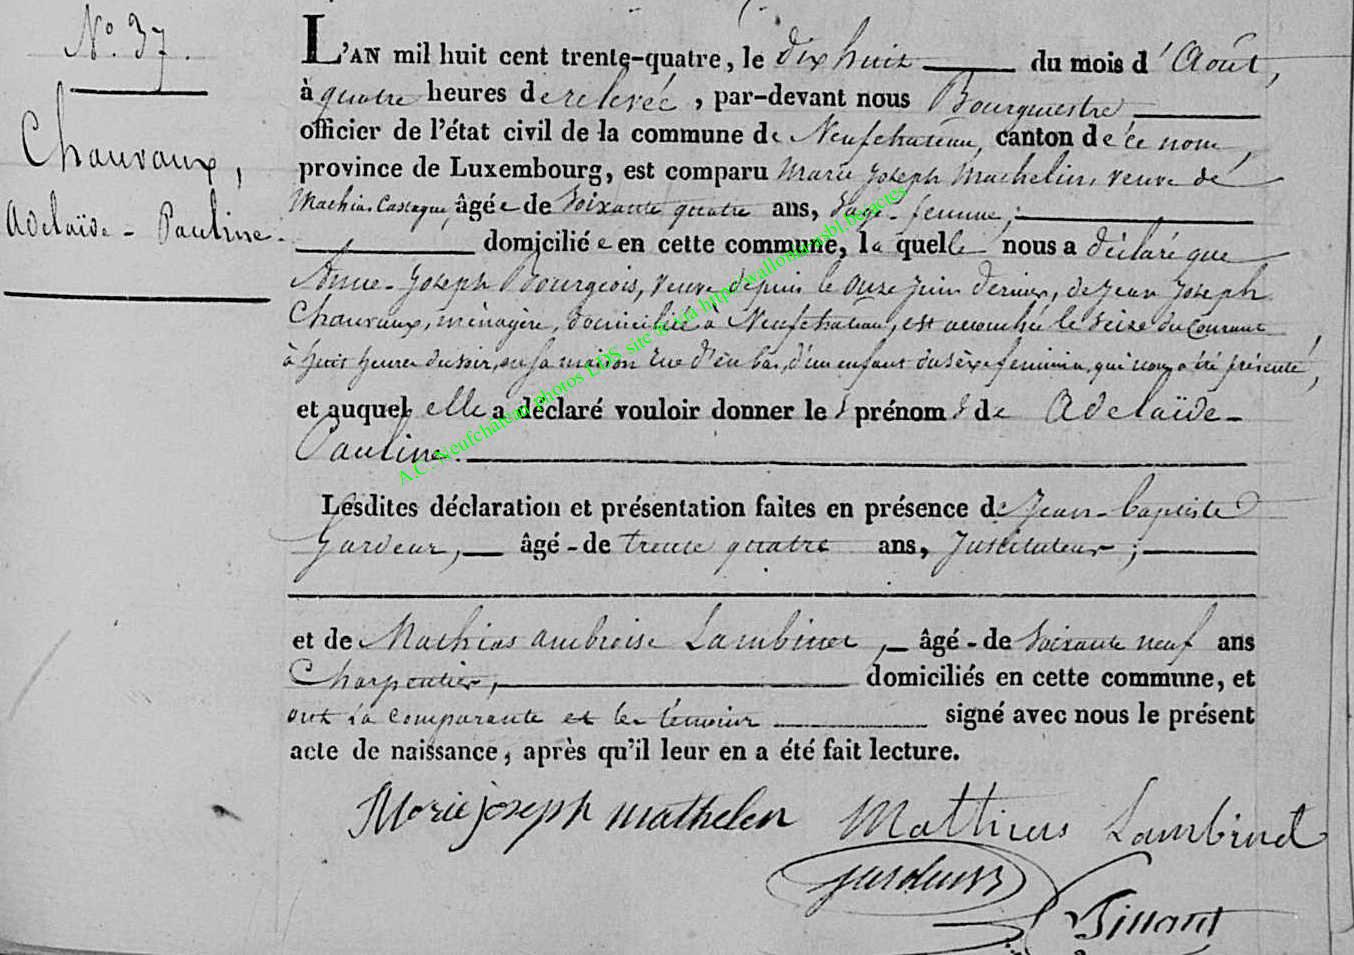 N° 37.
Chauvaux,
Adelaïde - Pauline.
L'AN mil huit cent trente-quatre, le dix huit du mois d'Août,
à quatre heures de relevée, par-devant nous Bourgmestre,
officier de l'état civil de la commune de Neufchateau, canton de ce nom,
province de Luxembourg, est comparu Marie Joseph Mathelin, veuve de
Mathias Castagne, âgée de soixante quatre ans, sage-femme;
domiciliée en cette commune, laquelle nous a déclaré que
Anne-Joseph Bourgeois, veuve depuis le onze juin dernier, de Jean Joseph
Chauvaux, ménagère, domiciliée à Neufchateau, est accouchée le seize du courant
à huit heures du soir, en sa maison rue d'en bas, d'un enfant du sèxe féminin, qui nous a été présenté,
et auquel elle a déclaré vouloir donner les prénoms de Adelaïde-
Pauline.
Lesdites déclaration et présentation faites en présence de Jean-Baptiste
Gardeur, âgé-de trente quatre ans, Instituteur;
et de Mathias ambroise Lambinet, âgé-de soixante neuf ans
Charpentier, domiciliés en cette commune, et
ont la comparante et les témoins signé avec nous le présent
acte de naissance, après qu'il leur en a été fait lecture.
Marie joseph mathelen Mathieus Lambinet
A.C. Neufchateau photos LDS site et via http://wallonia.asbl.be/actes